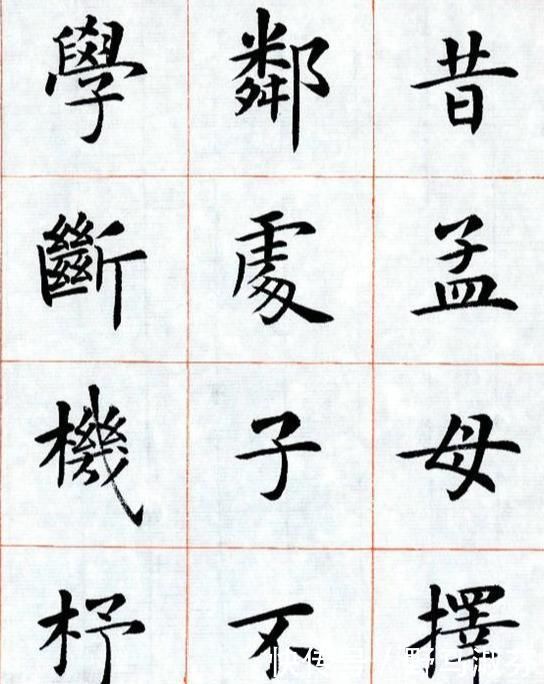 昔孟母擇
鄰處子不
學斷機杼